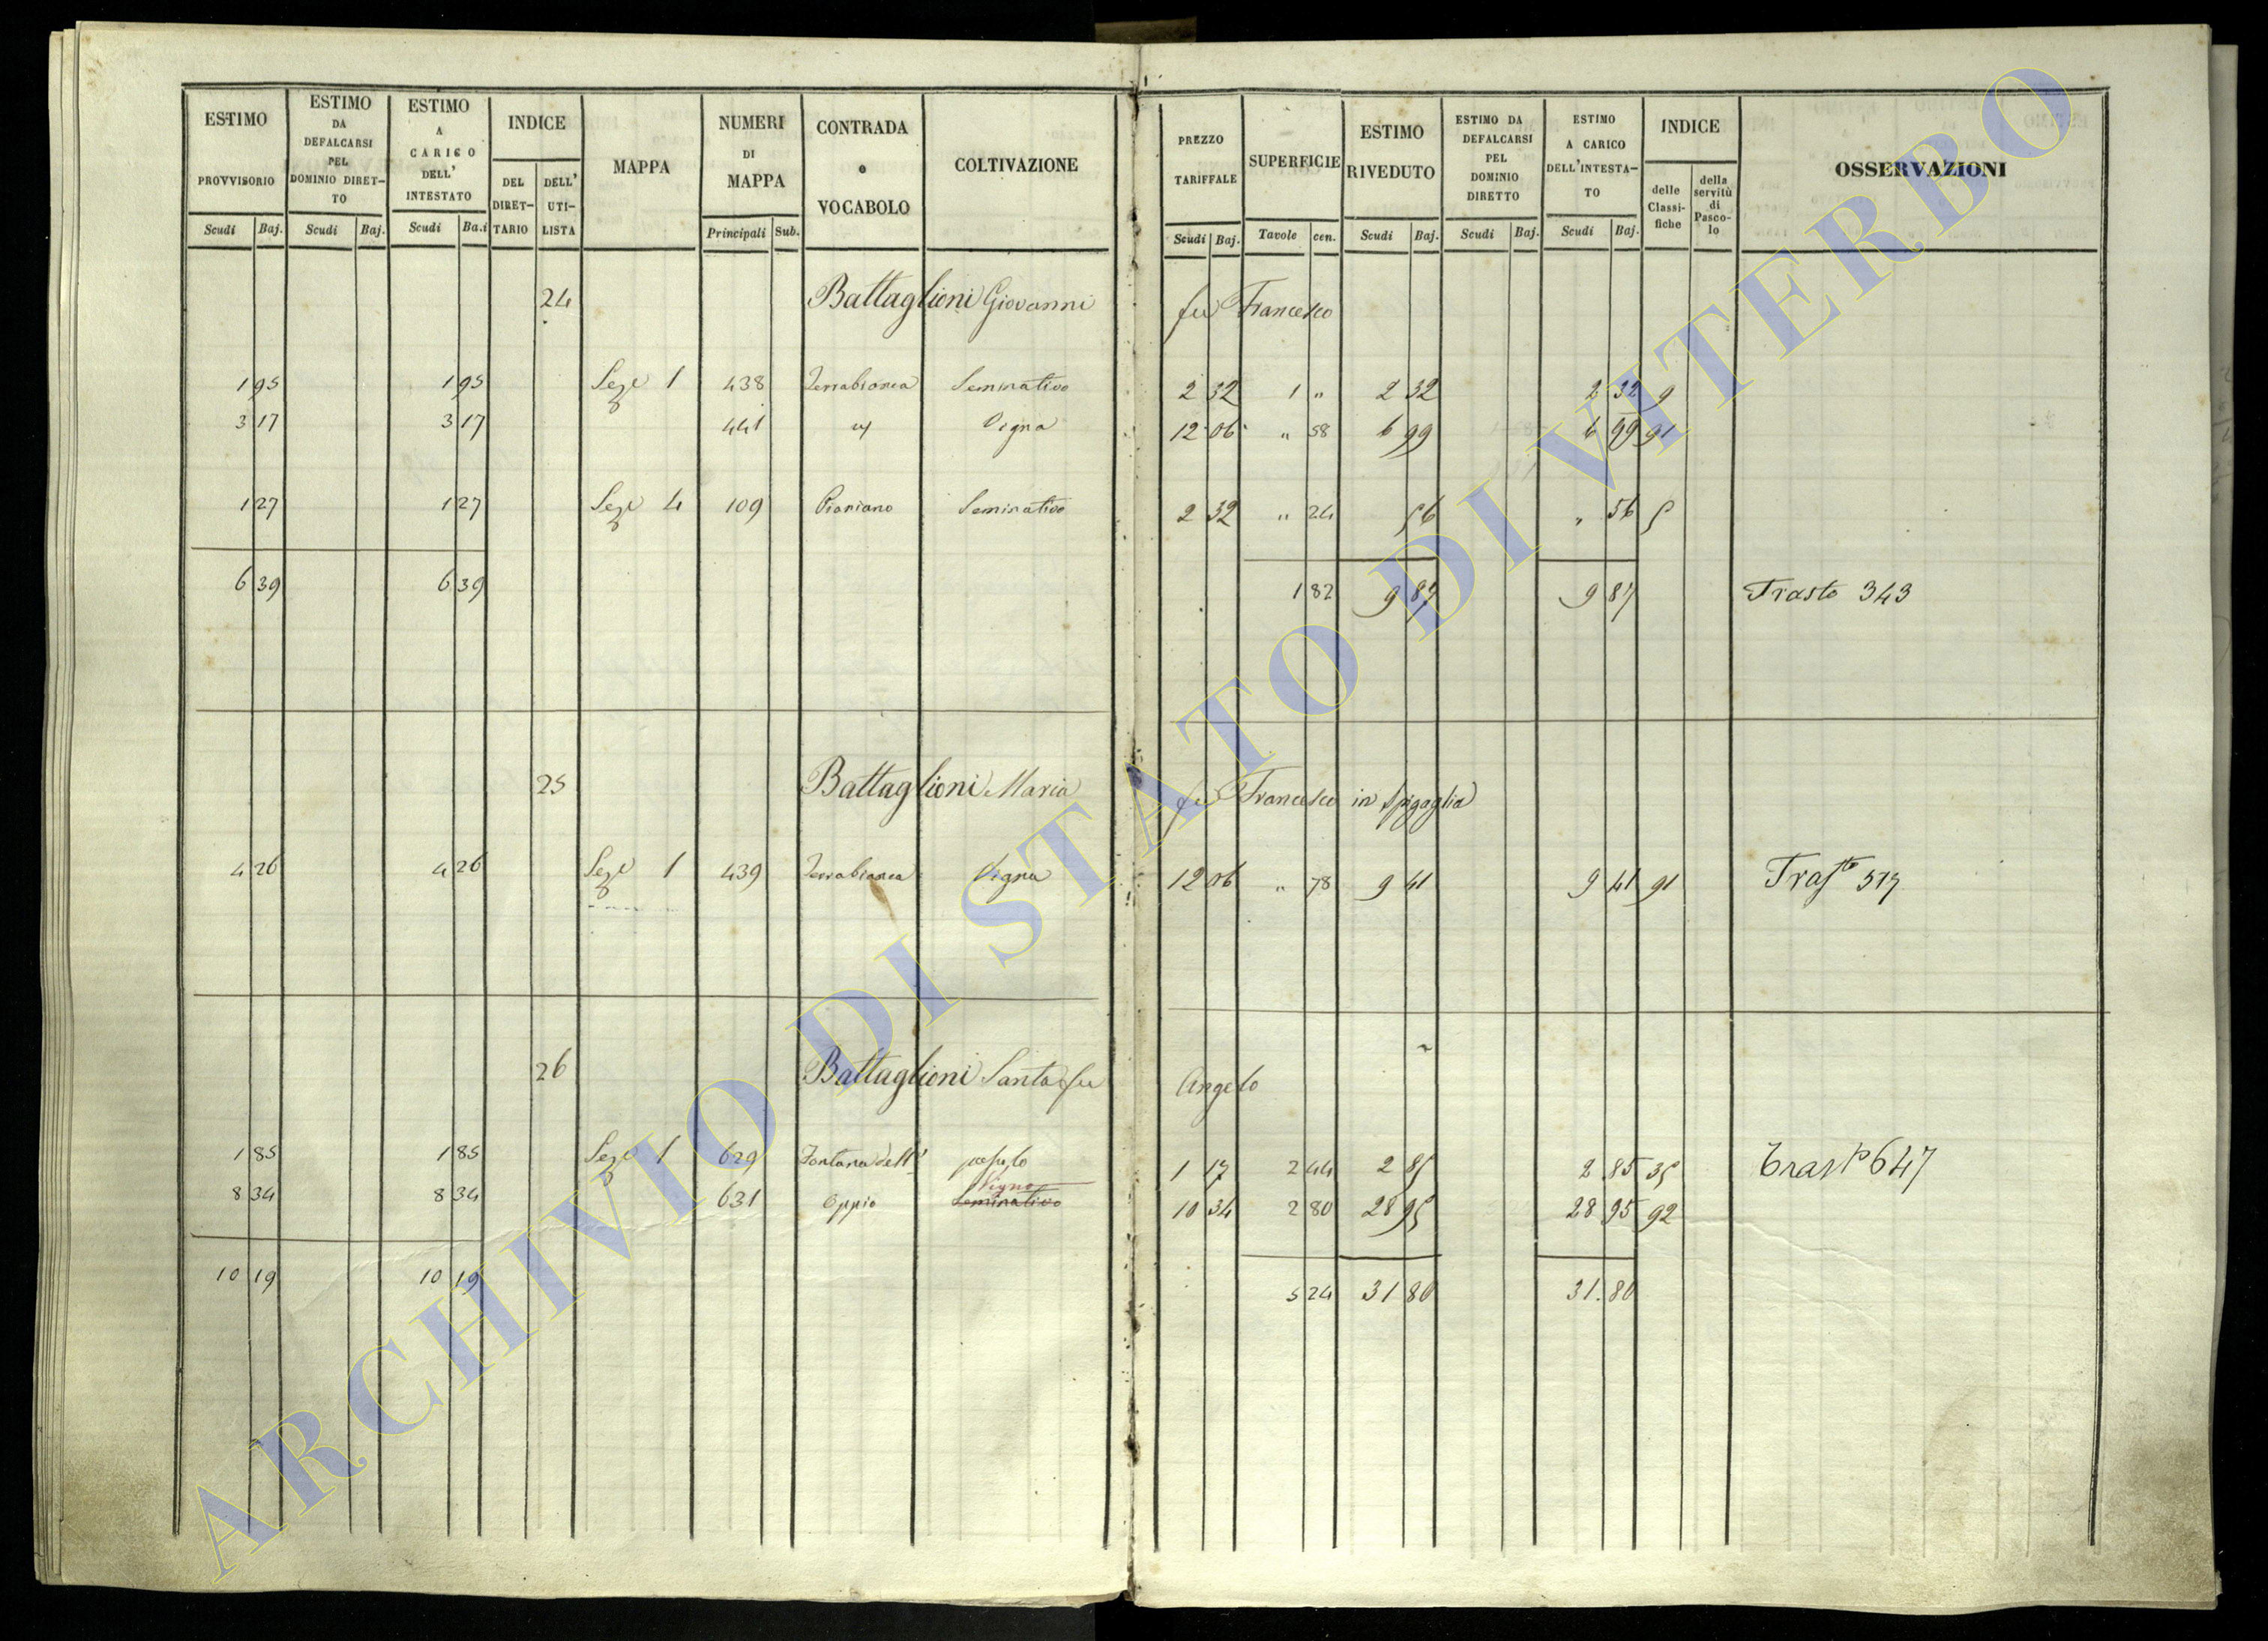 ESTIMO PROVVISORIO
Scudi Baj.
ESTIMO DA DEFALCARSI PEL DOMINIO DIRET- TO
Scudi Baj.
ESTIMO A CARICO DELL' INTESTATO
Scudi Ba.i
INDICE
DEL DIRET- TARIO
DELL' UTI- LISTA
MAPPA
NUMERI DI MAPPA
Principali Sub.
CONTRADA o VOCABOLO
COLTIVAZIONE
PREZZO TARIFFALE
Scudi Baj.
SUPERFICIE
Tavole cen.
ESTIMO RIVEDUTO
Scudi Baj.
ESTIMO DA DEFALCARSI PEL DOMINIO DIRETTO
Scudi Baj.
ESTIMO A CARICO DELL'INTESTA- TO
Scudi Baj.
INDICE
delle Classi- fiche
della servitù di Pasco- lo
OSSERVAZIONI
24 Battaglioni Giovanni fu Francesco
1 95 1 95 Seze 1 438 Terrabianca Seminativo 2 32 1 " 2 32 2 32 9
3 17 3 17 441 Vigna 12 06 " 58 6 99 6 99 91
1 27 1 27 Seze 4 109 Pianiano Seminativo 2 32 " 24 56 " 56 5
6 39 6 39 1 82 9 87 9 87 Trasto 343
25 Battaglioni Maria fu Francesco in Spigaglia
4 26 4 26 Seze 1 439 Terrabianca Vigna 12 06 " 78 9 41 9 41 91 Trasto 517
26 Battaglioni Santa fu Angelo
1 85 1 85 Seze 1 629 Fontana dell' 1 17 2 44 2 85 2 85 35 Trasto 647
Vigna
8 34 8 34 631 Oppio Seminativo 10 34 2 80 28 95 28 95 92
10 19 10 19 5 24 31 80 31.80
ARCHIVIO DI STATO DI VITERBO